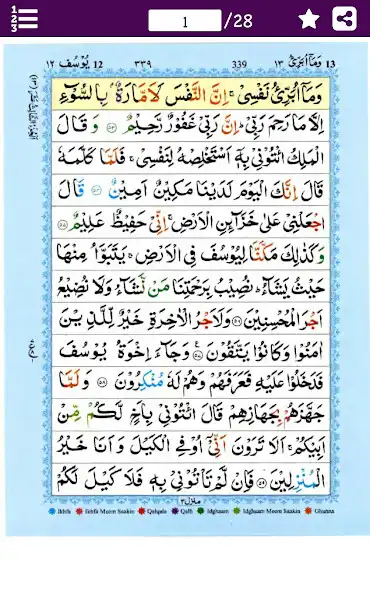 1 2 3
1 /28
12 يُوْسُف ١٢ ٣٣٩ 339 وَمَآ اُبَرِّئُ ١٣ 13
وَمَآ اُبَرِّئُ نَفْسِیْ ۚ اِنَّ النَّفْسَ لَاَمَّارَةٌۢ بِالسُّوْٓءِ
اِلَّا مَا رَحِمَ رَبِّیْ ؕ اِنَّ رَبِّیْ غَفُوْرٌ رَّحِیْمٌ ۝٥٣ وَ قَالَ
الْمَلِكُ ائْتُوْنِیْ بِهٖۤ اَسْتَخْلِصْهُ لِنَفْسِیْ ۚ فَلَمَّا كَلَّمَهٗ
قَالَ اِنَّكَ الْیَوْمَ لَدَیْنَا مَكِیْنٌ اَمِیْنٌ ۝٥٤ قَالَ
اجْعَلْنِیْ عَلٰی خَزَآىِٕنِ الْاَرْضِ ۚ اِنِّیْ حَفِیْظٌ عَلِیْمٌ ۝٥٥
وَ كَذٰلِكَ مَكَّنَّا لِیُوْسُفَ فِی الْاَرْضِ ۚ یَتَبَوَّاُ مِنْهَا
حَیْثُ یَشَآءُ ؕ نُصِیْبُ بِرَحْمَتِنَا مَنْ نَّشَآءُ وَلَا نُضِیْعُ
اَجْرَ الْمُحْسِنِیْنَ ۝٥٦ وَلَاَجْرُ الْاٰخِرَةِ خَیْرٌ لِّلَّذِیْنَ
اٰمَنُوْا وَكَانُوْا یَتَّقُوْنَ ۝٥٧ وَجَآءَ اِخْوَةُ یُوْسُفَ
فَدَخَلُوْا عَلَیْهِ فَعَرَفَهُمْ وَهُمْ لَهٗ مُنْكِرُوْنَ ۝٥٨ وَ لَمَّا
جَهَّزَهُمْ بِجَهَازِهِمْ قَالَ ائْتُوْنِیْ بِاَخٍ لَّكُمْ مِّنْ
اَبِیْكُمْ ۚ اَلَا تَرَوْنَ اَنِّیْۤ اُوْفِی الْكَیْلَ وَ اَنَا خَیْرُ
الْمُنْزِلِیْنَ ۝٥٩ فَاِنْ لَّمْ تَاْتُوْنِیْ بِهٖ فَلَا كَیْلَ لَكُمْ
منزل ٣
Ikhfa Ikhfa Meem Saakin Qalqala Qalb Idghaam Idghaam Meem Saakin Ghunna